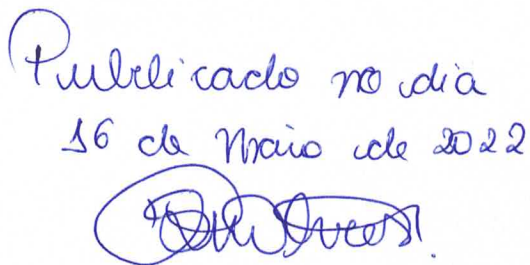 Publicado no dia
16 de Maio de 2022